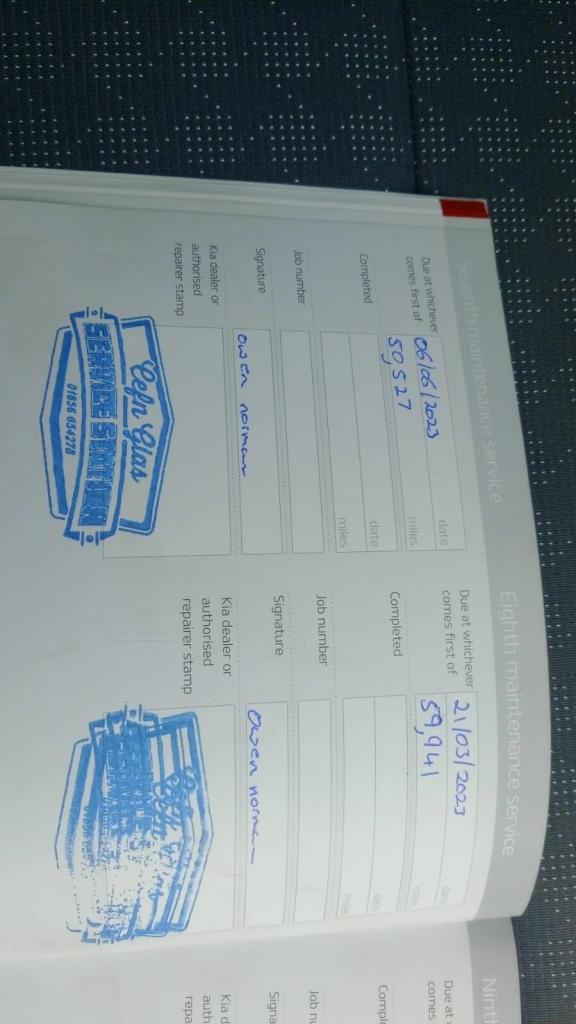 Seventh maintenance service
Due at whichever
comes first of
06/06/2023
date
50,527
miles
Completed
date
miles
Job number
Signature
owen norman
Kia dealer or
authorised
repairer stamp
Cefn Glas
SERVICE STATION
01656 654278
Eighth maintenance service
Due at whichever
comes first of
21/03/2023
date
59,941
miles
Completed
date
miles
Job number
Signature
Owen norman
Kia dealer or
authorised
repairer stamp
Cefn
Nint
Due at
comes
Compl
Job nu
Signa
Kia d
auth
repa